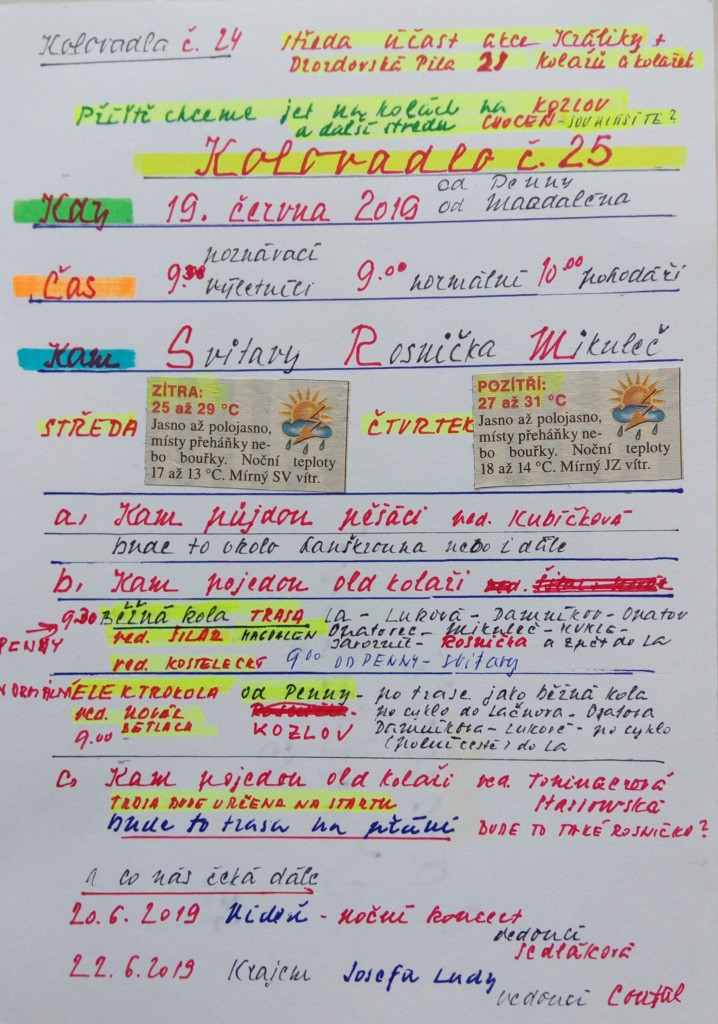 Kolovadla č. 24 středa účast akce Králíky +
Drozdovská Pila 28 kolařů a kolařek
Příště chceme jet na kolách na KOZLOV
a další středu CHOCEŇ - SOUHLASÍTE?
Kolovadlo č. 25
Kdy 19. června 2019 od Penny
od Magdaléna
Čas 9.30 poznávací
výletníci 9.00 normální 10.00 pohodáři
Kam Svitavy Rosnička Mikuleč
ZÍTRA:
25 až 29 °C
Jasno až polojasno,
místy přeháňky ne-
bo bouřky. Noční teploty
17 až 13 °C. Mírný SV vítr.
POZÍTŘÍ:
27 až 31 °C
Jasno až polojasno,
místy přeháňky ne-
bo bouřky. Noční teploty
18 až 14 °C. Mírný JZ vítr.
STŘEDA ČTVRTEK
a, Kam půjdou pěšáci ved. Kubíčková
bude to okolo Lanškrouna nebo i dále
b, Kam pojedou old kolaři ved.
9.30 Běžná kola TRASA La - Luková - Damníkov - Opatov
PENNY ved. ŠILAR MAGDALEN Opatovec - Mikuleč - KUKLE -
Javorník - Rosnička a zpět do La
ved. KOSTELECKÝ 9.00 OD PENNY - Svitavy
ELEKTROKOLA od Penny - po trase jako běžná kola
ved. NOVÁK po cyklo do Lačnova - Opatova
9.00 BETLACH KOZLOV Damníkova - Lukové - po cyklo
(polní cestě) do La
c, Kam pojedou old kolaři ved.
TRASA BUDE URČENA NA STARTU Haslowská
bude to trasa na přání BUDE TO TAKÉ ROSNIČKA?
A co nás čeká dále
20. 6. 2019 Vídeň - noční koncert
vedoucí
Sedláková
22. 6. 2019 Krajem Josefa Lady
vedoucí Coufal